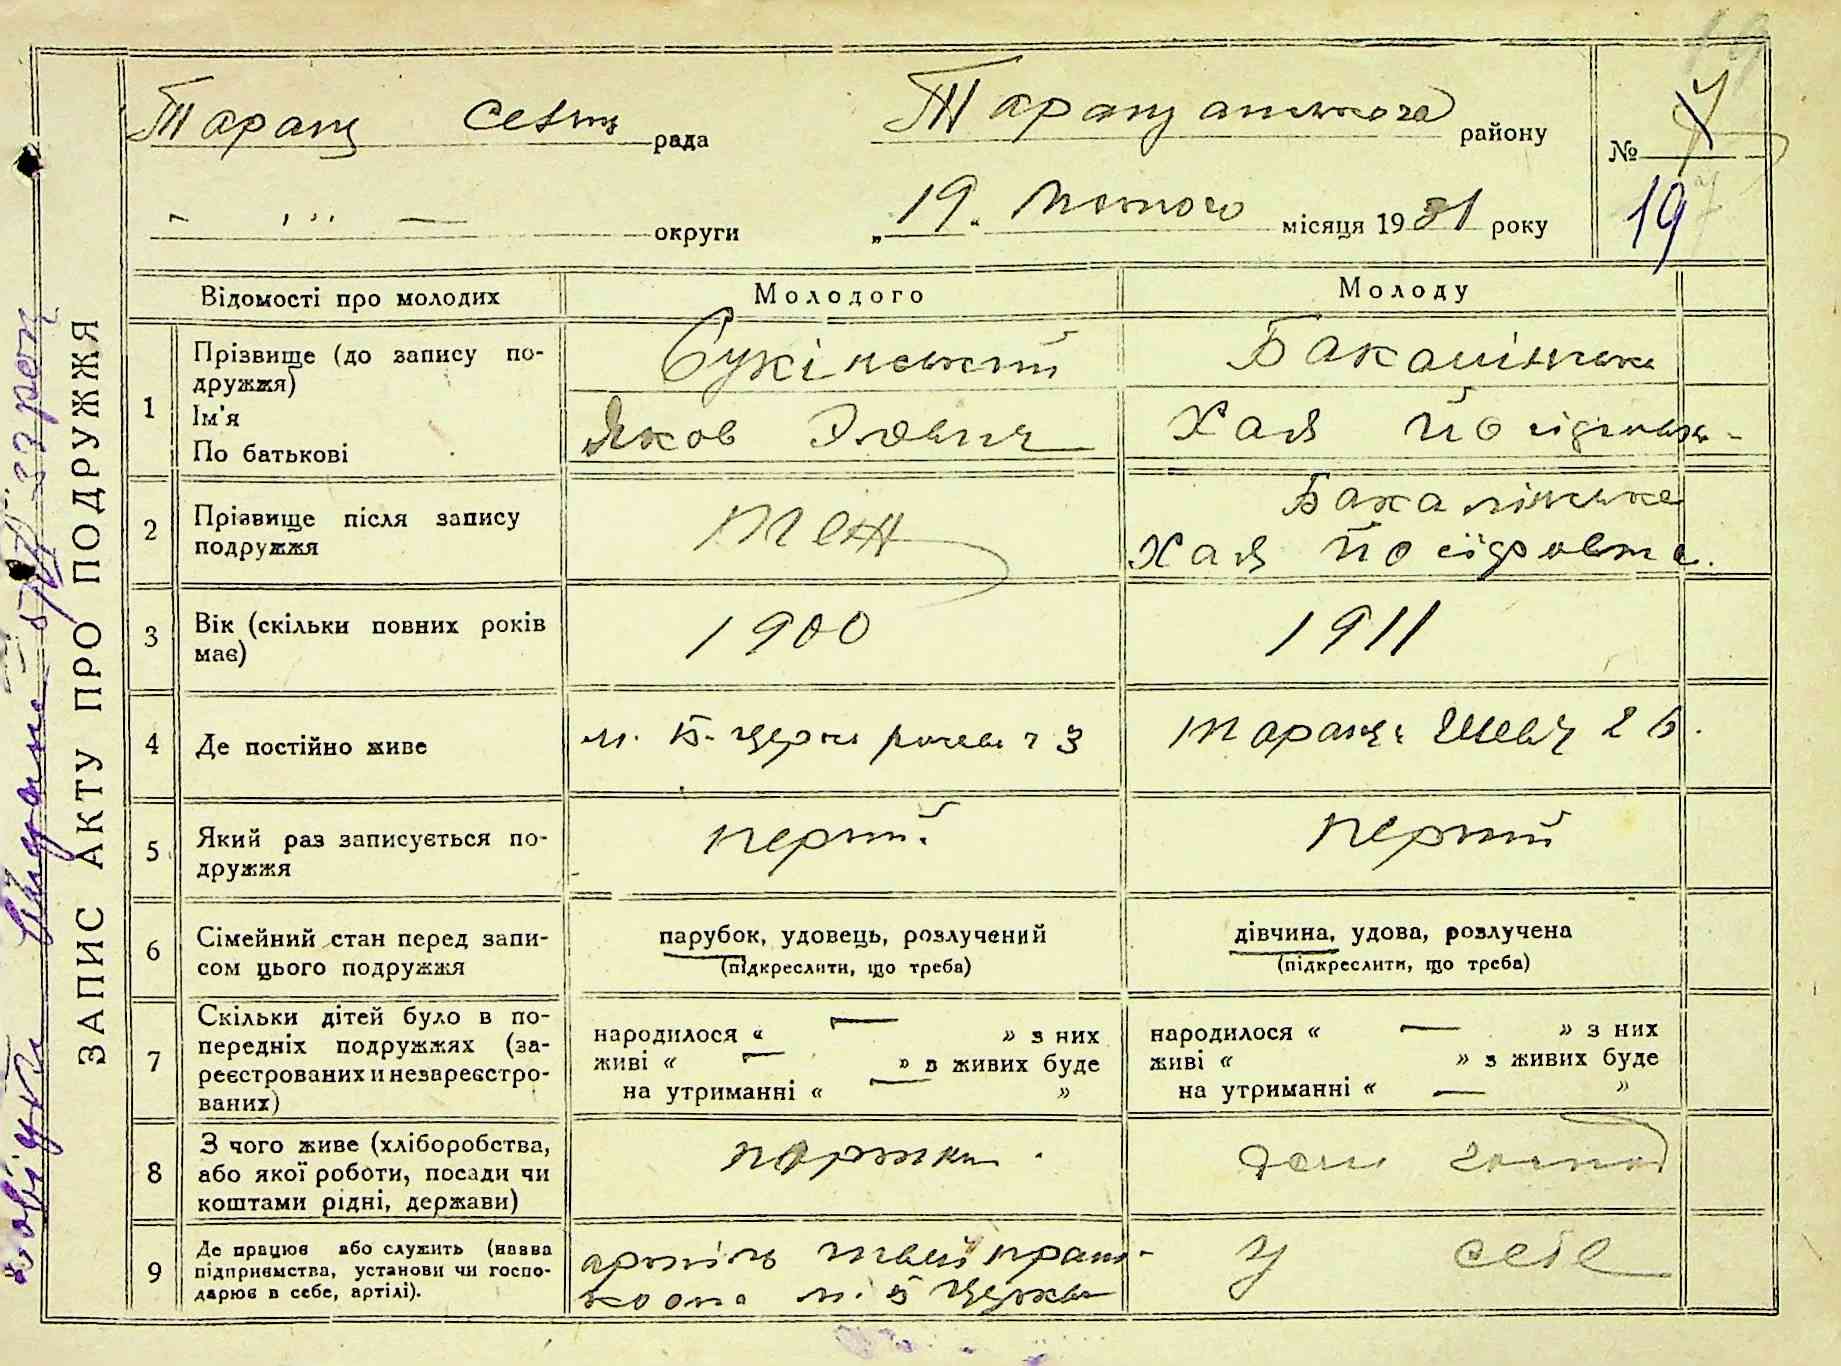 ЗАПИС АКТУ ПРО ПОДРУЖЖЯ
Таращ рада
Таращанського району
№
округи
„19“ лютого місяця 1931 року
19
Відомості про молодих
Молодого
Молоду
1
Прізвище (до запису по-
дружжя)
Ім'я
По батькові
Сукінський
Яков
Бакалінська
Хая
2
Прізвище після запису
подружжя
теж
Бакалінська
Хая
3
Вік (скільки повних років
має)
1900
1911
4
Де постійно живе
м. Б-Церква 3
Тараща Шевч 26.
5
Який раз записується по-
дружжя
перший
перший
6
Сімейний стан перед запи-
сом цього подружжя
парубок, удовець, розлучений
(підкреслити, що треба)
дівчина, удова, розлучена
(підкреслити, що треба)
7
Скільки дітей було в по-
передніх подружжях (за-
реєстрованих и незареєстро-
ваних)
народилося « — » з них
живі « — » з живих буде
на утриманні « — »
народилося « — » з них
живі « » з живих буде
на утриманні « — »
8
З чого живе (хліборобства,
або якої роботи, посади чи
коштами рідні, держави)
дом господ
9
Де працює або служить (назва
підприємства, установи чи госпо-
дарює в себе, артілі).
артіль
м. Б Церква
у себе